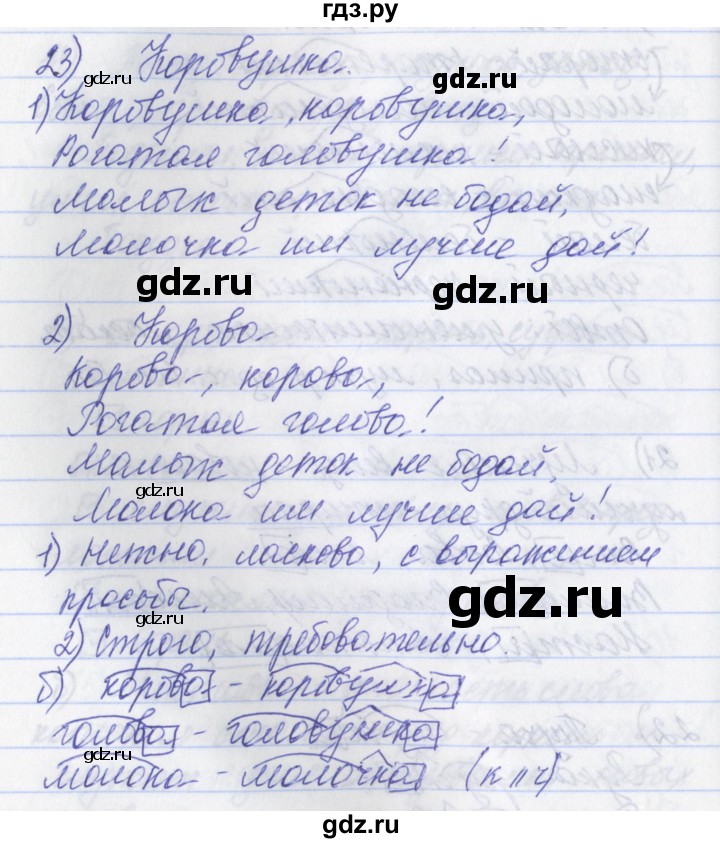 гдз.ру
23) Коровушка.
gdz.ru
gdz.ru
1) Коровушка, коровушка,
Рогатая головушка!
gdz.ru
Малых деток не бодай,
Молочка им лучше дай!
gdz.ru
gdz.ru
2) Корова
gdz.ru
Корова, корова,
Рогатая голова!
Малых деток не бодай,
gdz.ru
Молока им лучше дай!
1) Нежно, ласково, с выражением
просьбы.
gdz.ru
2) Строго, требовательно.
б) корова - коровушка
gdz.ru
голова - головушка
gdz.ru
молока - молочка (к // ч)
gdz.ru
gdz.ru